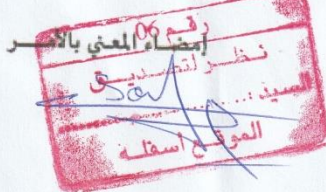 إمضاء المعني بالأمـــر
رقم 06
نظر لتصديق
السيد :
الموقع اسفله